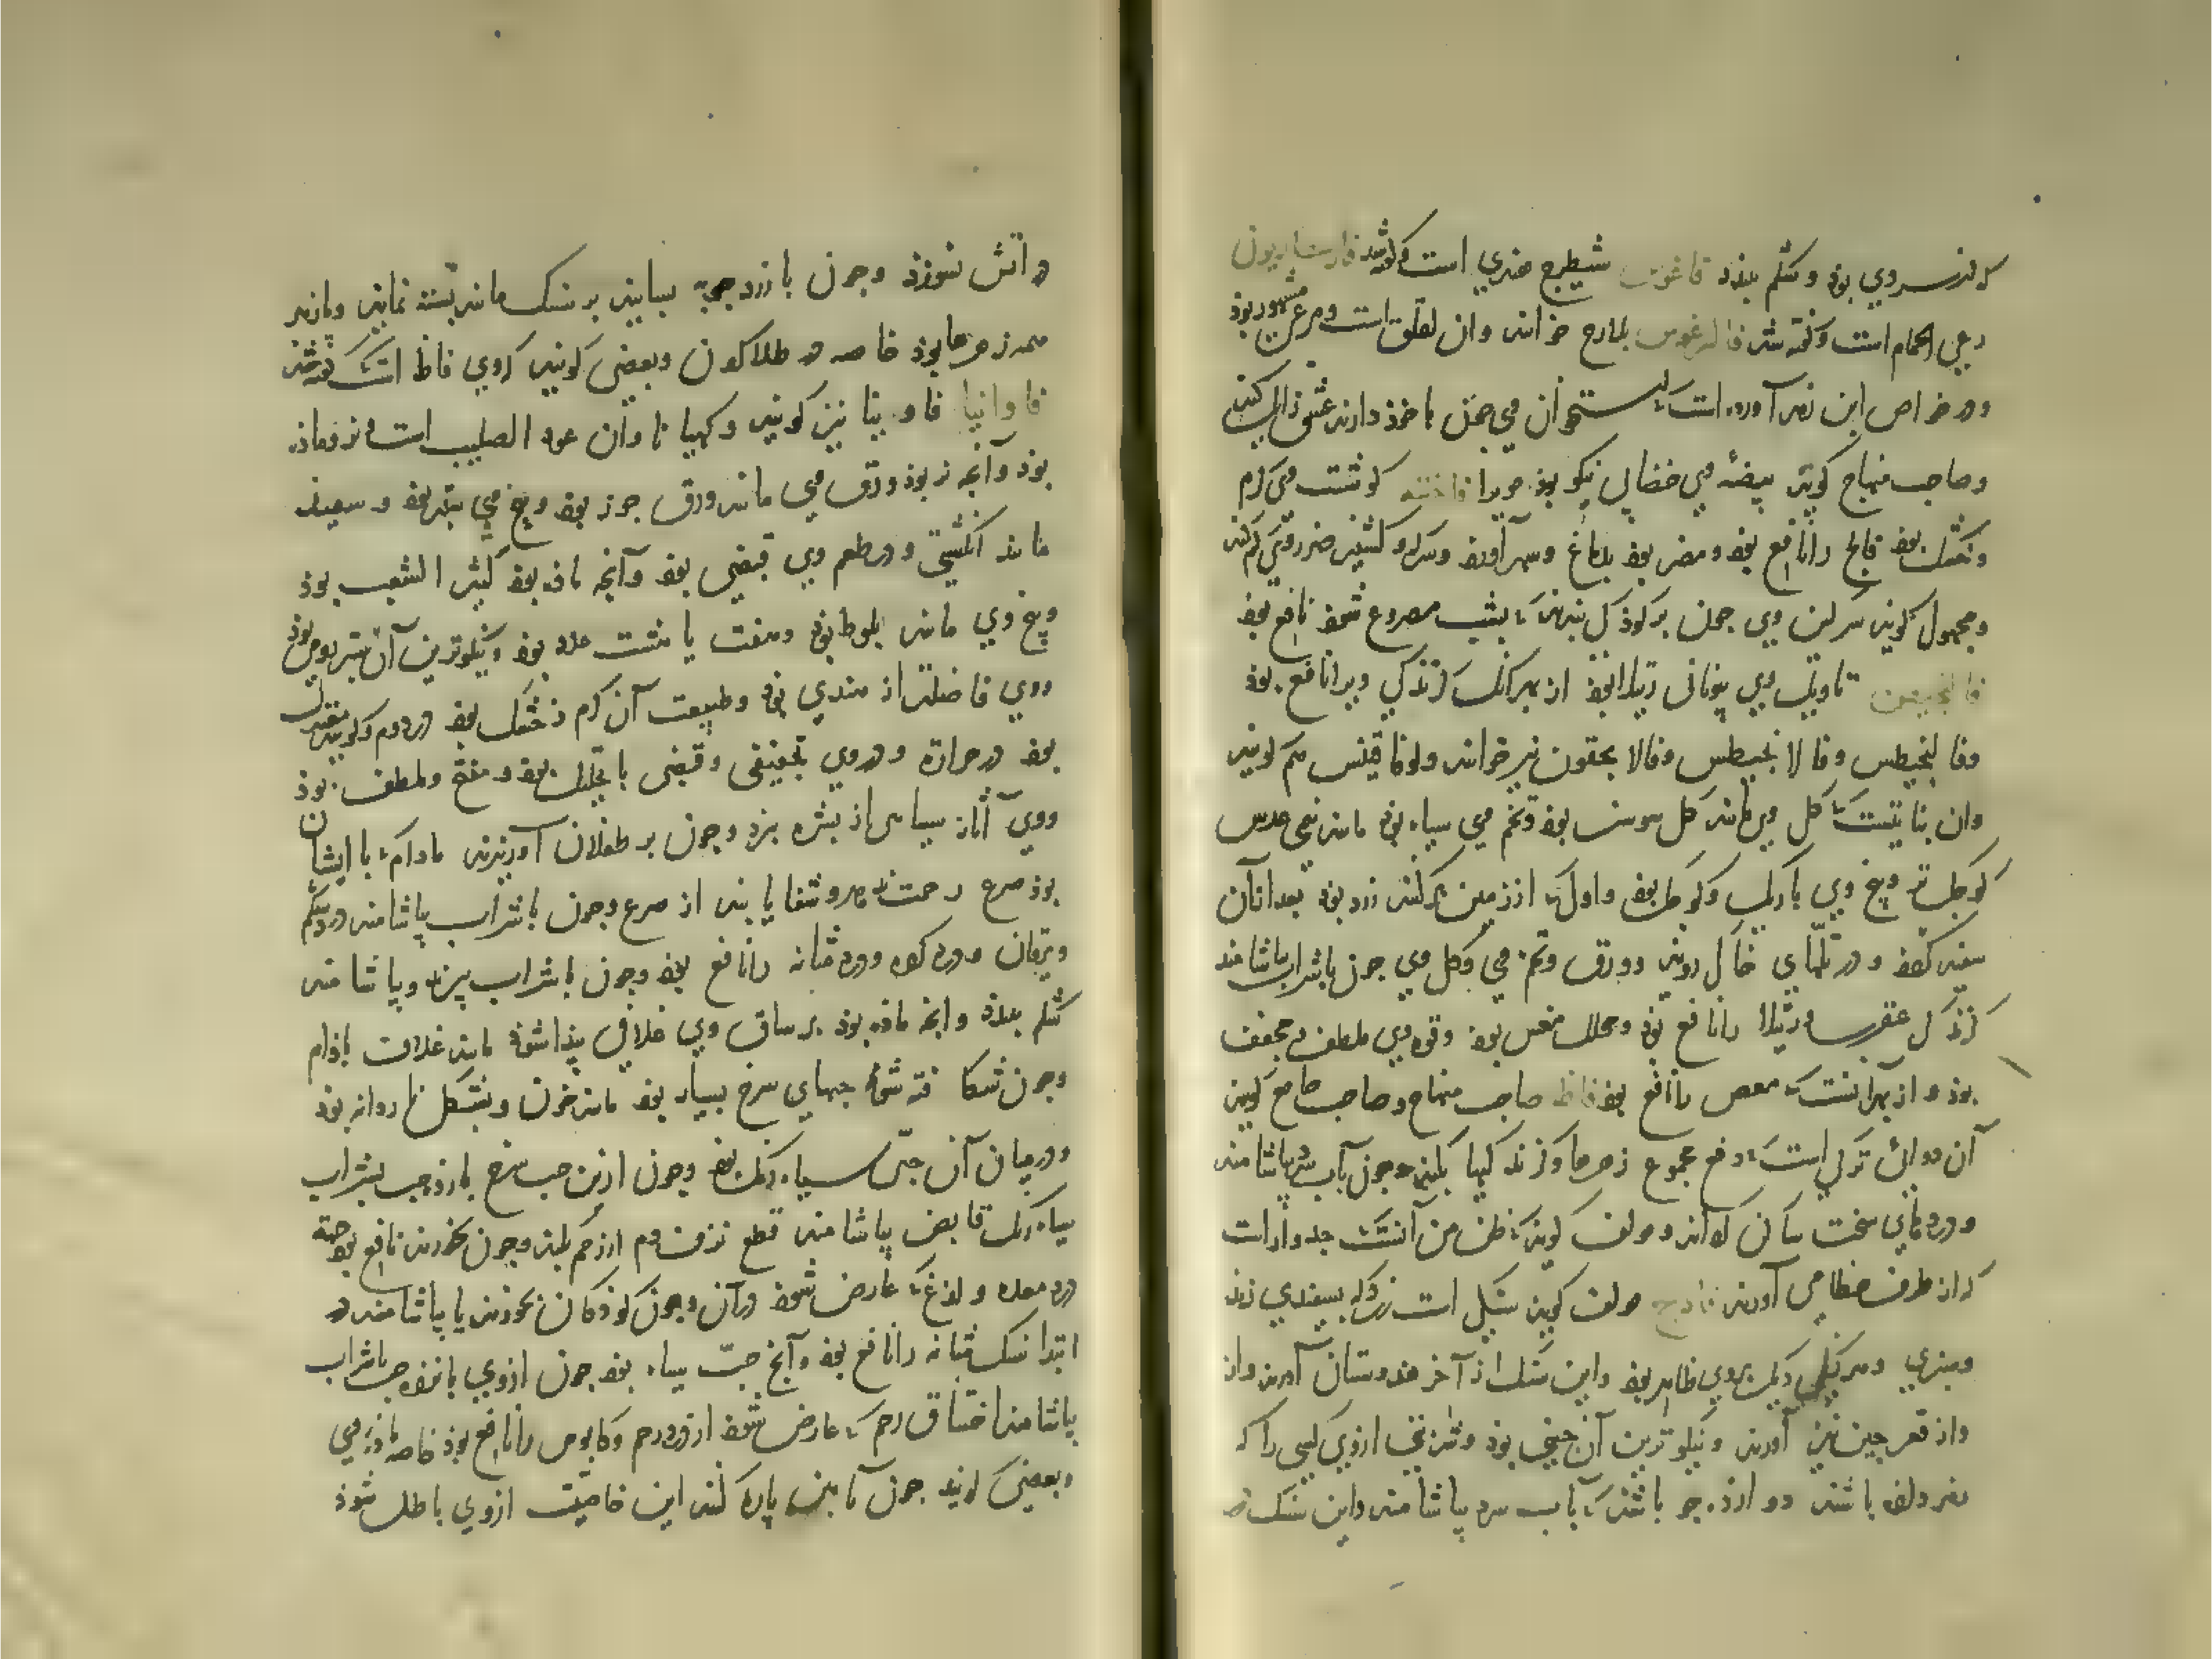 که از سردی بود و شکم ببندد فاغوس شیطرج هندی است و گفته شد فارسطاریون
رعی الحمام است و گفته شد فالرغوس بلارج خوانند و آن لقلق است و مرغی مشهور بود
و در خواص ابن زهر آورده است که استخوان وی چون با خود دارند عشق زایل کند
و صاحب منهاج گوید بیضهٔ وی خضابی نیکو بود مویرا فاخته گوشت وی گرم
و خشک بود فالج را نافع بود و مضر بود بدماغ و سهر آورد و سرکه و گشنیز ضرر وی کم کند
و مجهول گویند سرکین وی چون بر کودکی بندند که بشب مصروع شود نافع بود
فالنجیقن تاویل وی بیونانی رتیلا بود از بهر آنک گزندگی ویرا نافع بود
وفالنجیطس وفالانجیطس وفالانجقون نیز خوانند ولوقاقینس هم گویند
وان نباتیست که گل وی مانند گل سوسن بود و تخم وی سیاه بود مانند نیمی عدس
کوچک تر و بیخ وی باریک و کوچک بود و اول که از زمین بر کنند زرد بود بعد از آن
سفید گردد و در تلهای خاک روید و ورق و تخم وی و گل وی چون با شراب بیاشامند
گزندگی عقرب و رتیلا را نافع بود و محلل مغص بود و قوه وی ملطف و مجفف
بود و از بهر آنست که مغص را نافع بود فاظ صاحب منهاج و صاحب جامع گویند
آن دوائی ترکی است که دفع مجموع زهرها و گزند کیها بکند چون بآب سرد بیاشامند
و دردهای سخت ساکن گرداند و مولف گوید که ظن من آنست که جدوارست
که از طرف خطا می آورند فادج مولف گوید سنگی است زرد که بسپیدی زند
و سبزی و هر رنگی دیگر بروی ظاهر بود و این سنگ از آخر هندوستان آورند و آن
و از قعر چین نیز آورند و نیکوترین آن چینی بود و شربتی از وی کسی را که
زهر داده باشند دوازده جو باشد که بآب سرد بیاشامند و این سنگ در
در آتش نسوزد و چون با زرد چوبه بسایند بر سنگ مانند بسته نماید و پازهر
همه زهرها بود خاصه در طلا کردن و بعضی گویند که وی فاظ است و گفته شد
فاوانیا فاوینا نیز گویند و کهیانا و آن عود الصلیب است و نر و ماده
بود و آنچه نر بود ورق وی مانند ورق جوز بود و بیخ وی سطبر بود و سفید
مانند انگشتی و در طعم وی قبضی بود و آنچه ماده بود کثیر الشعب بود
و بیخ وی مانند بلوط بود و هفت یا هشت عدد بود و نیکوترین آن ستبر رومی بود
و وی فاضلتر از هندی بود و طبیعت آن گرم و خشک بود در دوم و گویند معتدل
بود در حرارة و در وی تجفیفی و قبضی با تحلیل بود و مفتح و ملطف بود
و وی آثار سیاهی از بشره ببرد و چون بر طفلان آویزند مادام که با ایشان
بود صرع زحمت ندهد و شفا یابند از صرع و چون با شراب بیاشامند درد شکم
و یرقان و درد گرده و درد مثانه را نافع بود و چون با شراب بپزند و بیاشامند
شکم ببندد و آنچه ماده بود بر ساق وی غلافی پیدا شود مانند غلاف بادام
و چون شکافته شود حبهای سرخ بسیار بود مانند خون و بشکل نار دانه بود
و در میان آن حبی سیاه رنگ بود و چون از این حب سرخ یازده حب بشراب
سیاه رنگ قابض بیاشامند قطع نزف دم از رحم بکند و چون بخورند نافع بود جهة
درد معده و لذغ که عارض شود در آن و چون کودکان بخورند یا بیاشامند در
ابتدا سنگ مثانه را نافع بود و آنچ حب سیاه بود چون از وی پانزده حب با شراب
بیاشامند اختناق رحم که عارض شود از درد رحم و کابوس را نافع بود خاصه مادهٔ وی
و بعضی گویند چون بآهن پاره کنند این خاصیت از وی باطل شود